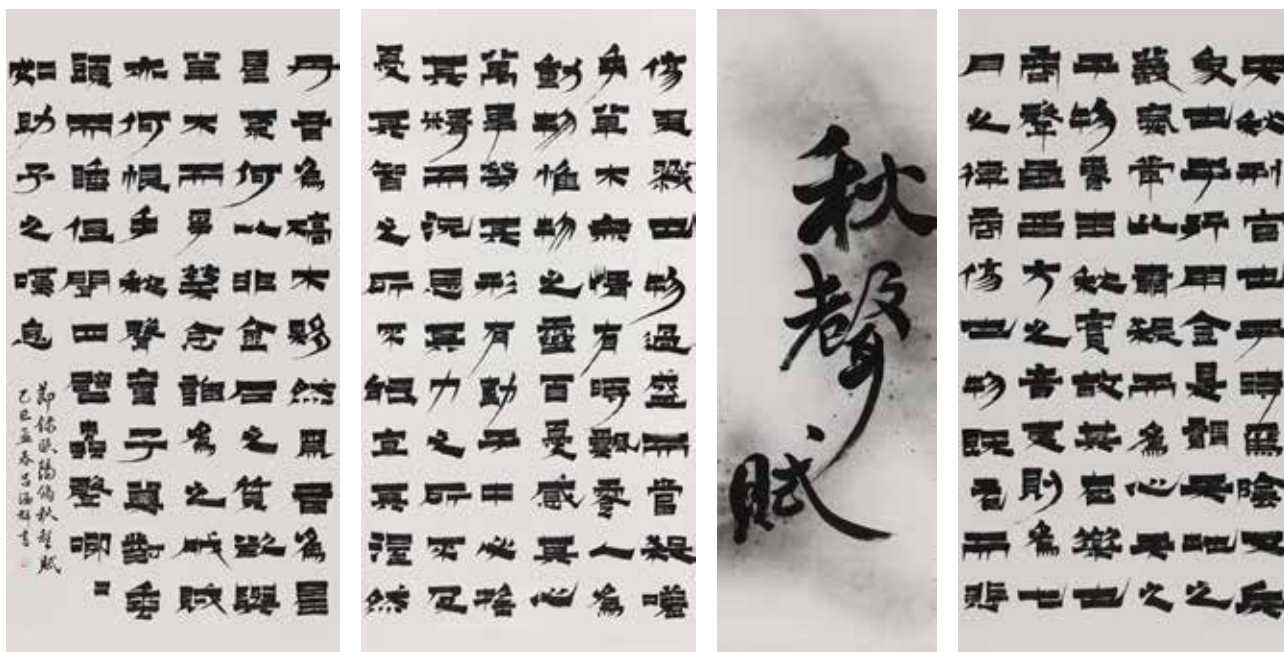 夫秋刑官也于時為陰又兵
象也于行用金是謂天地之
義氣常以肅殺而為心天之
于物春生秋實故其在樂也
商聲主西方之音夷則為七
月之律商傷也物既老而悲
秋聲賦
傷夷戮也物過盛而當殺嗟
乎草木無情有時飄零人為
動物惟物之靈百憂感其心
萬事勞其形有動于中必搖
其精而況思其力之所不及
憂其智之所不能宜其渥然
丹者為槁木黟然黑者為星
星奈何以非金石之質欲與
草木而爭榮念誰為之戕賊
亦何恨乎秋聲童子莫對垂
頭而睡但聞四壁蟲聲唧唧
如助予之嘆息
節錄歐陽脩秋聲賦
乙巳孟春 書